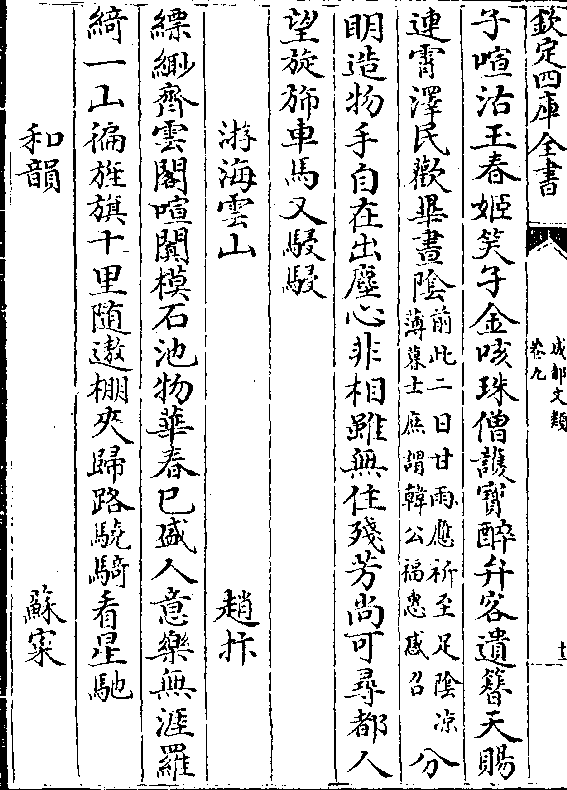 欽定四庫全書
成都文類
卷九
十一
子喧沽玉春姬笑子金咳珠僧護寶醉弁客遺簪天賜
連霄澤民歡畢晝陰前此二日甘雨應祈至足陰凉
薄暮士庶謂韓公福惠感召
分
明造物手自在出塵心非相雖無住殘芳尚可尋都人
望旋斾車馬又駸駸
游海雲山 趙抃
縹緲齊雲閣喧闐摸石池物華春已盛人意樂無涯羅
綺一山徧旌旗十里随遨棚夾歸路驍騎看星馳
和韻 蘇寀